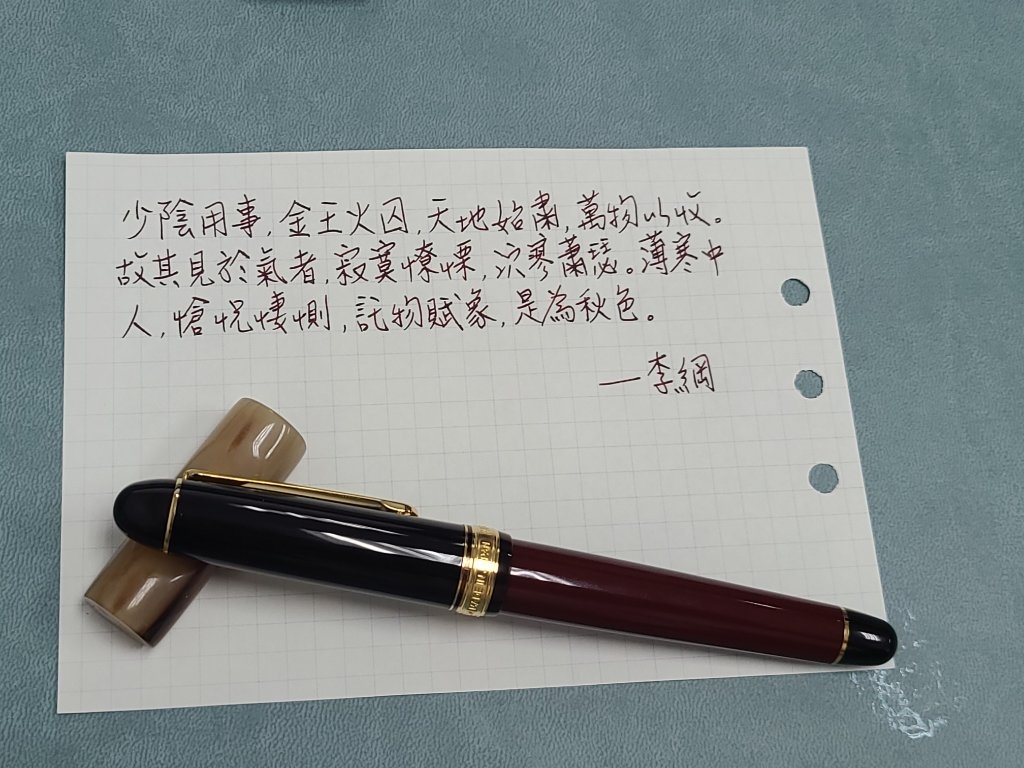 少陰用事,金王火囚,天地始肅,萬物以收。
故其見於氣者,寂寞憭慄,泬寥蕭瑟。薄寒中
人,愴怳悽惻,託物賦象,是為秋色。
—李綱